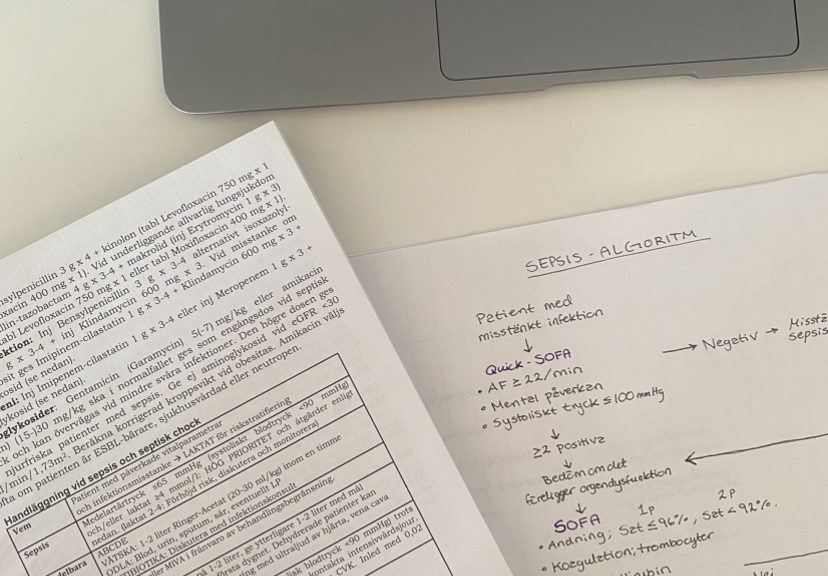 nsylpenicillin 3 g x 4 + kinolon (tabl Levofloxacin 750 mg x 1
oxacin 400 mg x 1). Vid underliggande allvarlig lungsjukdom
illin-tazobactam 4 g x 3-4 + makrolid (inj Erytromycin 1 g x 3)
tabl Levofloxacin 750 mg x 1 eller tabl Moxifloxacin 400 mg x 1).
ektion: Inj Bensylpenicillin 3 g x 3-4 alternativt isoxazolyl-
g x 3-4 + inj Klindamycin 600 mg x 3. Vid misstanke om
osit ges Imipenem-cilastatin 1 g x 3-4 + Klindamycin 600 mg x 3 +
kosid (se nedan).
Inj Imipenem-cilastatin 1 g x 3-4 eller inj Meropenem 1 g x 3 +
glykosid (se nedan).
oglykosider: Gentamicin (Garamycin) 5(-7) mg/kg eller amikacin
(15-)30 mg/kg ska i normalfallet ges som engångsdos vid septisk
ck och kan övervägas vid mindre svåra infektioner. Den högre dosen ges
njurfriska patienter med sepsis. Ge ej aminoglykosid vid eGFR <30
l/min/1,73m². Beräkna korrigerad kroppsvikt vid obesitas. Amikacin väljs
ofta om patienten är ESBL-bärare, sjukhusvårdad eller neutropen.
Handläggning vid sepsis och septisk chock
Vem
Patient med påverkade vitalparametrar
och infektionsmisstanke → LAKTAT för riskstratifiering
Sepsis
Medelartärtryck ≤65 mmHg (systoliskt blodtryck <90 mmHg)
och/eller laktat ≥4 mmol/l: HÖG PRIORITET och åtgärder enligt
nedan (laktat 2-4: Förhöjd risk, diskutera och monitorera)
delbara
ABCDE
VÄTSKA: 1-2 liter Ringer-Acetat (20-30 ml/kg) inom en timme
ODLA: Blod, urin, sputum, sår, eventuellt LP
TIBIOTIKA: Diskutera med infektionskonsult
eller MIVA i frånvaro av behandlingsbegränsning.
nå 1-2 liter, ge ytterligare 1-2 liter med mål
första dygnet. Dehydrerade patienter kan
ing med ultraljud av hjärta, vena cava
isk blodtryck <90 mmHg) trots
kontakta intensivvårdsjour.
CVK. Inled med 0,02
SEPSIS - ALGORITM
Patient med
misstänkt infektion
↓
Quick-SOFA
• AF ≥ 22/min
• Mentel påverkan
• Systoliskt tryck ≤ 100 mmHg
→ Negativ → Misstä
sepsis
↓
≥2 positiva
↓
Bedöm om det
föreligger organdysfunktion
↓
SOFA 1p 2p
• Andning; Sat ≤ 96%, Sat < 92%.
• Koagulation; trombocyter